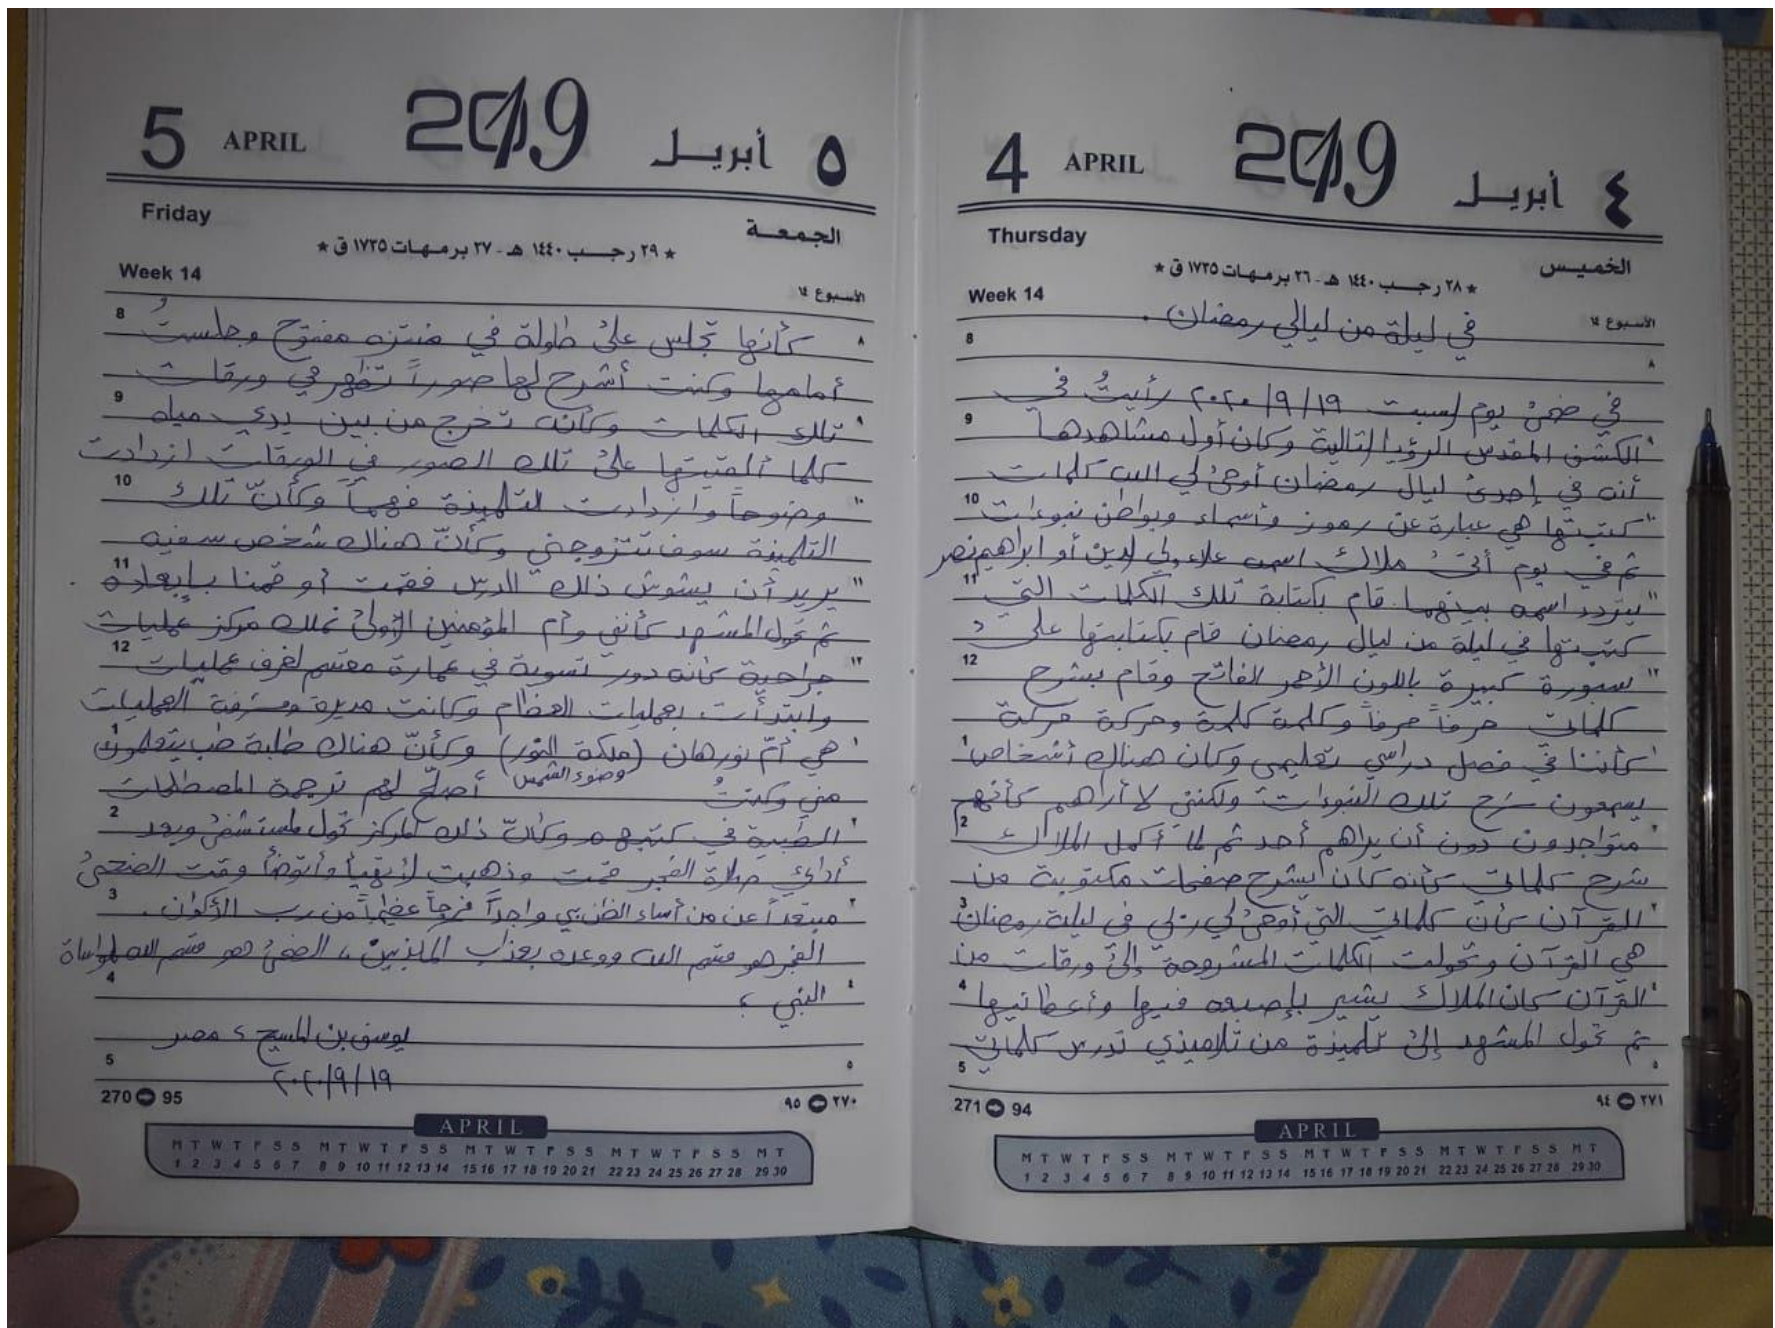 4 APRIL 2019 أبريل ٤
Thursday الخميس
★ ٢٨ رجب ١٤٤٠ هـ - ٢٦ برمهات ١٧٣٥ ق ★
Week 14 الأسبوع ١٤
في ليلة من ليالي رمضان .
8 ٨
في ضحىٰ يوم السبت ٢٠٢٠/٩/١٩ رأيتُ في
9 الكشف المقدس الرؤيا التالية وكان أول مشاهدها ٩
أنه في إحدىٰ ليال رمضان أوحىٰ لي الله كلمات
10 كتبتها هي عبارة عن رموز وأسماء وبواطن نبوءات ١٠
ثم في يوم أتىٰ ملاك اسمه علاء ولي الدين أو ابراهيم نصر
11 يتردد اسمه بينهما قام بكتابة تلك الكلمات التي ١١
كتبتها في ليلة من ليال رمضان قام بكتابتها على
12 سبورة كبيرة باللون الأحمر الفاتح وقام بشرح ١٢
كلماتي حرفاً حرفاً وكلمة كلمة وحركة حركة
1 كأننا في فصل دراسي تعليمي وكان هناك أشخاص ١
يسمعون شرح تلك النبوءات ولكنني لا أراهم كأنهم
2 متواجدون دون أن يراهم أحد ثم لمّا أكمل الملاك ٢
شرح كلماتي كأنه كان يشرح صفحات مكتوبة من
3 القرآن كأن كلماتي التي أوحىٰ لي ربي في ليلة رمضان ٣
هي القرآن وتحولت الكلمات المشروحة إلىٰ ورقات من
4 القرآن كان الملاك يشير بإصبعه فيها وأعطانيها ٤
ثم تحول المشهد إلىٰ تلميذة من تلاميذي تدرس كلماتي
5 ٥
271 94 ٩٤ ٢٧١
APRIL
M T W T F S S M T W T F S S M T W T F S S M T W T F S S M T
1 2 3 4 5 6 7 8 9 10 11 12 13 14 15 16 17 18 19 20 21 22 23 24 25 26 27 28 29 30
5 APRIL 2019 أبريل ٥
Friday الجمعة
★ ٢٩ رجب ١٤٤٠ هـ - ٢٧ برمهات ١٧٣٥ ق ★
Week 14 الأسبوع ١٤
8 كأنها تجلس علىٰ طاولة في منتزه مفتوح وجلستُ ٨
أمامها وكنت أشرح لها صوراً تظهر في ورقات
9 تلك الكلمات وكأنه تخرج من بين يدي مياه ٩
كلما ألقيتها علىٰ تلك الصور في الورقات ازدادت
10 وضوحاً وازدادت التلميذة فهماً وكأنّ تلك ١٠
التلميذة سوف تتزوجني وكأنّ هناك شخص سفيه
11 يريد أن يشوش ذلك الدرس فقمت أو قمنا بإبعاده . ١١
ثم تحول المشهد كأنني وأم المؤمنين الأولىٰ نملك مركز عمليات
12 جراحية كأنه دور تسوية في عمارة مقسم لغرف عمليات ١٢
وابتدأت بعمليات العظام وكانت مديرة ومشرفة العمليات
1 هي أمّ نورهان (ملكة النور) وكأنّ هناك طلبة طب يتعلمون ١
وضوء الشمس
مني وكنتُ أصلّح لهم ترجمة المصطلحات
2 الطبية في كتبهم وكأنّ ذلك المركز تحول لمستشفىٰ وبعد ٢
أدائي صلاة الفجر قمت وذهبت لأتهيأ وأتوضأ وقت الضحىٰ
3 مبتعداً عن من أساء الظن بي واجداً فرجاً عظيماً من رب الأكوان . ٣
الفجر هو قسم الله ووعده بعذاب المكذبين ، الضحىٰ هو قسم الله لمواساة
4 النبي ، ٤
يوسف بن المسيح ، مصر
5 ٥
٢٠٢٠/٩/١٩
270 95 ٩٥ ٢٧٠
APRIL
M T W T F S S M T W T F S S M T W T F S S M T W T F S S M T
1 2 3 4 5 6 7 8 9 10 11 12 13 14 15 16 17 18 19 20 21 22 23 24 25 26 27 28 29 30